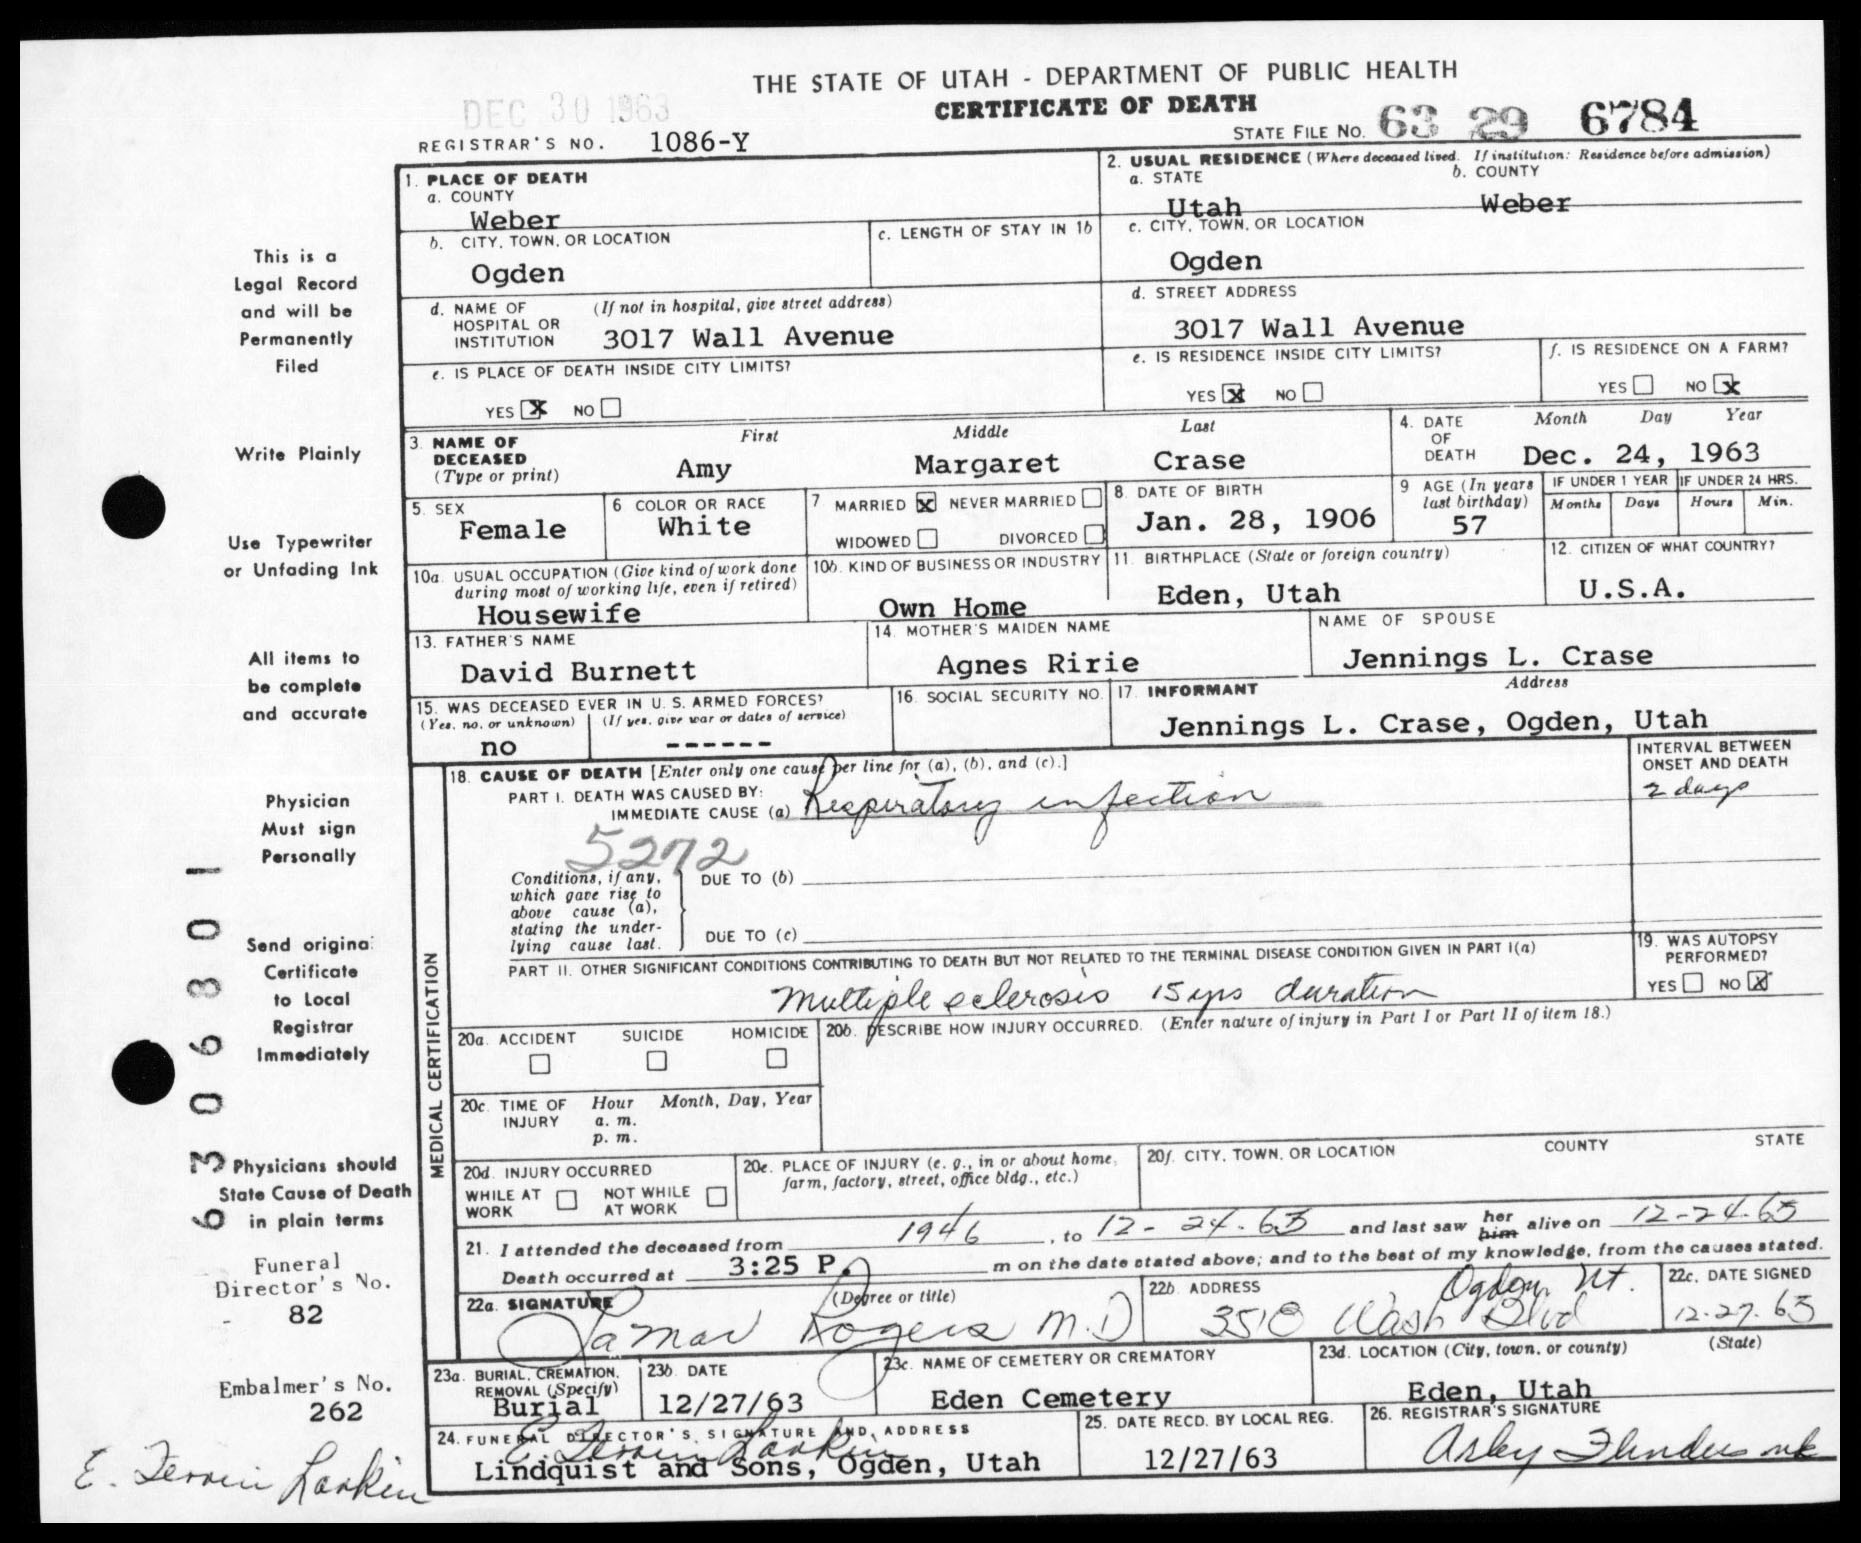 THE STATE OF UTAH - DEPARTMENT OF PUBLIC HEALTH
DEC 30 1963
CERTIFICATE OF DEATH
REGISTRAR'S NO. 1086-Y
STATE FILE NO. 63 29 6784
1. PLACE OF DEATH
a. COUNTY
Weber
2. USUAL RESIDENCE (Where deceased lived. If institution: Residence before admission)
a. STATE b. COUNTY
Utah Weber
b. CITY, TOWN, OR LOCATION
Ogden
c. LENGTH OF STAY IN 1b
c. CITY, TOWN, OR LOCATION
Ogden
d. NAME OF HOSPITAL OR INSTITUTION (If not in hospital, give street address)
3017 Wall Avenue
d. STREET ADDRESS
3017 Wall Avenue
e. IS PLACE OF DEATH INSIDE CITY LIMITS?
YES X NO
e. IS RESIDENCE INSIDE CITY LIMITS?
YES X NO
f. IS RESIDENCE ON A FARM?
YES NO X
3. NAME OF DECEASED (Type or print)
First Middle Last
Amy Margaret Crase
4. DATE OF DEATH
Month Day Year
Dec. 24, 1963
5. SEX
Female
6 COLOR OR RACE
White
7 MARRIED X NEVER MARRIED
WIDOWED DIVORCED
8. DATE OF BIRTH
Jan. 28, 1906
9 AGE (In years last birthday)
57
IF UNDER 1 YEAR
Months Days
IF UNDER 24 HRS.
Hours Min.
10a. USUAL OCCUPATION (Give kind of work done during most of working life, even if retired)
Housewife
10b. KIND OF BUSINESS OR INDUSTRY
Own Home
11. BIRTHPLACE (State or foreign country)
Eden, Utah
12. CITIZEN OF WHAT COUNTRY?
U.S.A.
13. FATHER'S NAME
David Burnett
14. MOTHER'S MAIDEN NAME
Agnes Ririe
NAME OF SPOUSE
Jennings L. Crase
15. WAS DECEASED EVER IN U. S. ARMED FORCES?
(Yes, no, or unknown) (If yes, give war or dates of service)
no ------
16. SOCIAL SECURITY NO.
17. INFORMANT Address
Jennings L. Crase, Ogden, Utah
MEDICAL CERTIFICATION
18. CAUSE OF DEATH [Enter only one cause per line for (a), (b), and (c).]
INTERVAL BETWEEN ONSET AND DEATH
PART I. DEATH WAS CAUSED BY:
IMMEDIATE CAUSE (a) Respiratory infection
2 days
5272
Conditions, if any, which gave rise to above cause (a), stating the underlying cause last.
DUE TO (b)
DUE TO (c)
PART II. OTHER SIGNIFICANT CONDITIONS CONTRIBUTING TO DEATH BUT NOT RELATED TO THE TERMINAL DISEASE CONDITION GIVEN IN PART I(a)
Multiple sclerosis 15 yrs duration
19. WAS AUTOPSY PERFORMED?
YES NO X
20a. ACCIDENT SUICIDE HOMICIDE
20b. DESCRIBE HOW INJURY OCCURRED. (Enter nature of injury in Part I or Part II of item 18.)
20c. TIME OF INJURY Hour Month, Day, Year
a. m.
p. m.
20d. INJURY OCCURRED
WHILE AT WORK NOT WHILE AT WORK
20e. PLACE OF INJURY (e. g., in or about home, farm, factory, street, office bldg., etc.)
20f. CITY, TOWN, OR LOCATION COUNTY STATE
21. I attended the deceased from 1946, to 12-24-63 and last saw her him alive on 12-24-63
Death occurred at 3:25 P. m on the date stated above; and to the best of my knowledge, from the causes stated.
22a. SIGNATURE (Degree or title)
Lamar Rogers M.D
22b. ADDRESS
Ogden Ut.
3518 Wash Blvd
22c. DATE SIGNED
12-27-63
23a. BURIAL, CREMATION, REMOVAL (Specify)
Burial
23b. DATE
12/27/63
23c. NAME OF CEMETERY OR CREMATORY
Eden Cemetery
23d. LOCATION (City, town, or county) (State)
Eden, Utah
24. FUNERAL DIRECTOR'S SIGNATURE AND ADDRESS
E. Terrein Larkin
Lindquist and Sons, Ogden, Utah
25. DATE RECD. BY LOCAL REG.
12/27/63
26. REGISTRAR'S SIGNATURE
This is a
Legal Record
and will be
Permanently
Filed
Write Plainly
Use Typewriter
or Unfading Ink
All items to
be complete
and accurate
Physician
Must sign
Personally
Send original
Certificate
to Local
Registrar
Immediately
Physicians should
State Cause of Death
in plain terms
6306801
Funeral
Director's No.
82
Embalmer's No.
262
E. Terrein Larkin